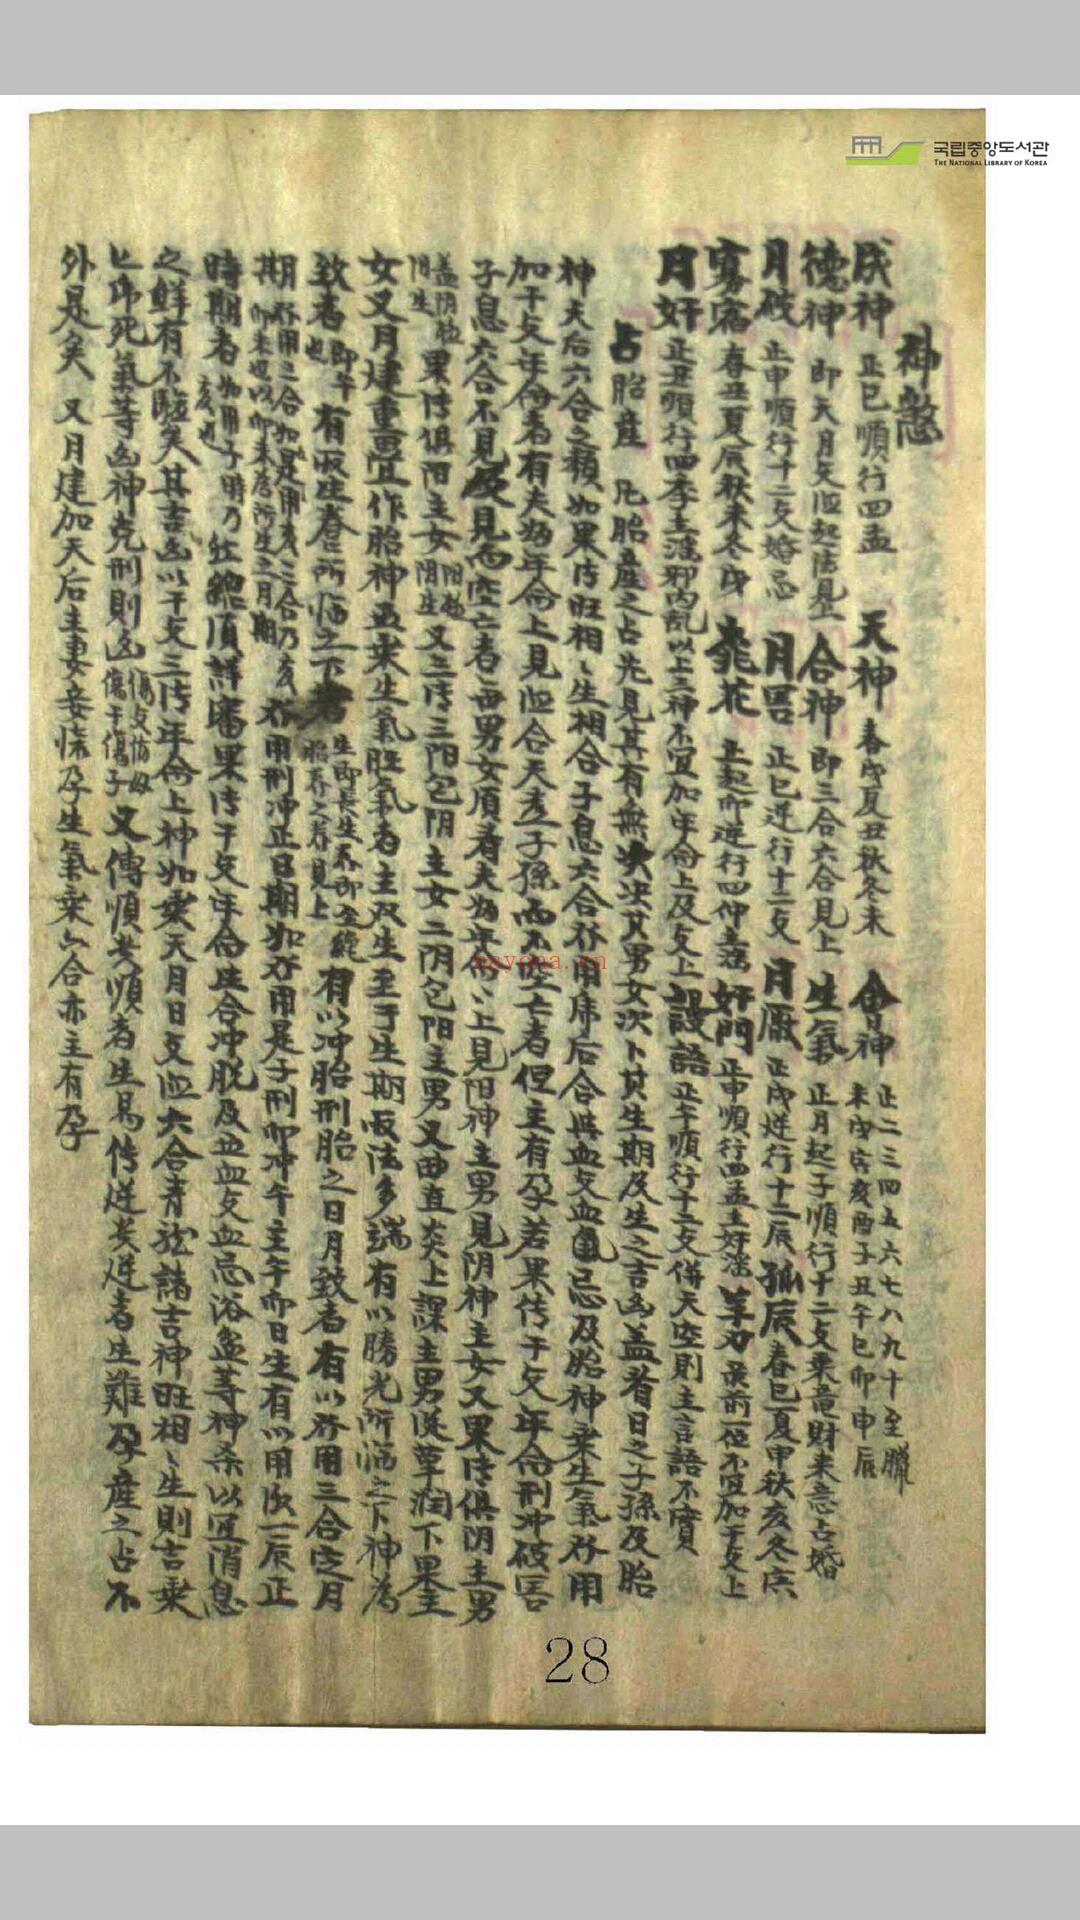 국립중앙도서관
THE NATIONAL LIBRARY OF KOREA
神煞
成神 正巳順行四孟 天神 春戌夏丑秋冬未 會神 正二三四五六七八九十至臘 未戌寅亥酉子丑午巳卯申辰
德神 即天月支 合神 即三合六合見上 生氣 正月起子順行十二支乘竜財来意占婚
月破 正申順行十二支婚忌 月害 正巳逆行十二支 月厭 正戌逆行十二辰 孤辰 春巳夏申秋亥冬寅
寡宿 春丑夏辰秋未冬戌 桃花 正起卯逆行四仲主淫 奸門 正申順行四孟主奸淫 羊刃 前一位不宜加干支上
月奸 正丑順行四季主淫邪内亂以上三神不宜加年命上及支上 設語 正午順行十二支併天空則主言語不實
占胎産 凡胎産之占先見其有無次决其男女次卜其生期及生之吉凶盖者日之子孫及胎
神天后六合之類如果传旺相相生相合子息六合發用后合與血支血忌及胎神乘生氣發用
加干支年命者有夫婦年命上見合天喜子孫而不空亡者但主有孕若果传干支年命刑冲破害
子息六合不見及見而空亡者 男女須看夫婦年命上見阳神主男見阴神主女又果传俱阴主男
盖阴極阳生 果传俱阳主女 阳極阴生 又三传二阳包阴主女二阴包阳主男又曲直炎上課主男從革润下果主
女又月建重 宜作胎神 乘生氣旺氣者主双生至于生期取法多端有以勝光所临之下神為
致者 即午也 有取生养 所临之下者 生即長生养即 胎养之养見上 有以冲胎刑胎之日月致者有以發用三合定月
期 發用三合如是用 三合乃亥卯未也以卯未 所生之月期 發用刑冲正日期如發用是子刑卯冲午主午卯日生有以用 一辰正
時期者 如用子時乃 亥也 然 須詳審果传干支年命生合冲脱及 血支血忌浴盆等神杀以宜消息
之鲜有不驗矣其吉凶以干支三传年命上神如乘天月日支 六合青龙諸吉神旺相相生則吉乘
亡 死氣等凶神克刑則凶 傷支傷母 傷干傷子 又傳順 順者生易传逆 逆者生難孕産之占不
外是矣 又月建加天后主妻妾懷孕生氣乘六合亦主有孕
28
nayona.cn